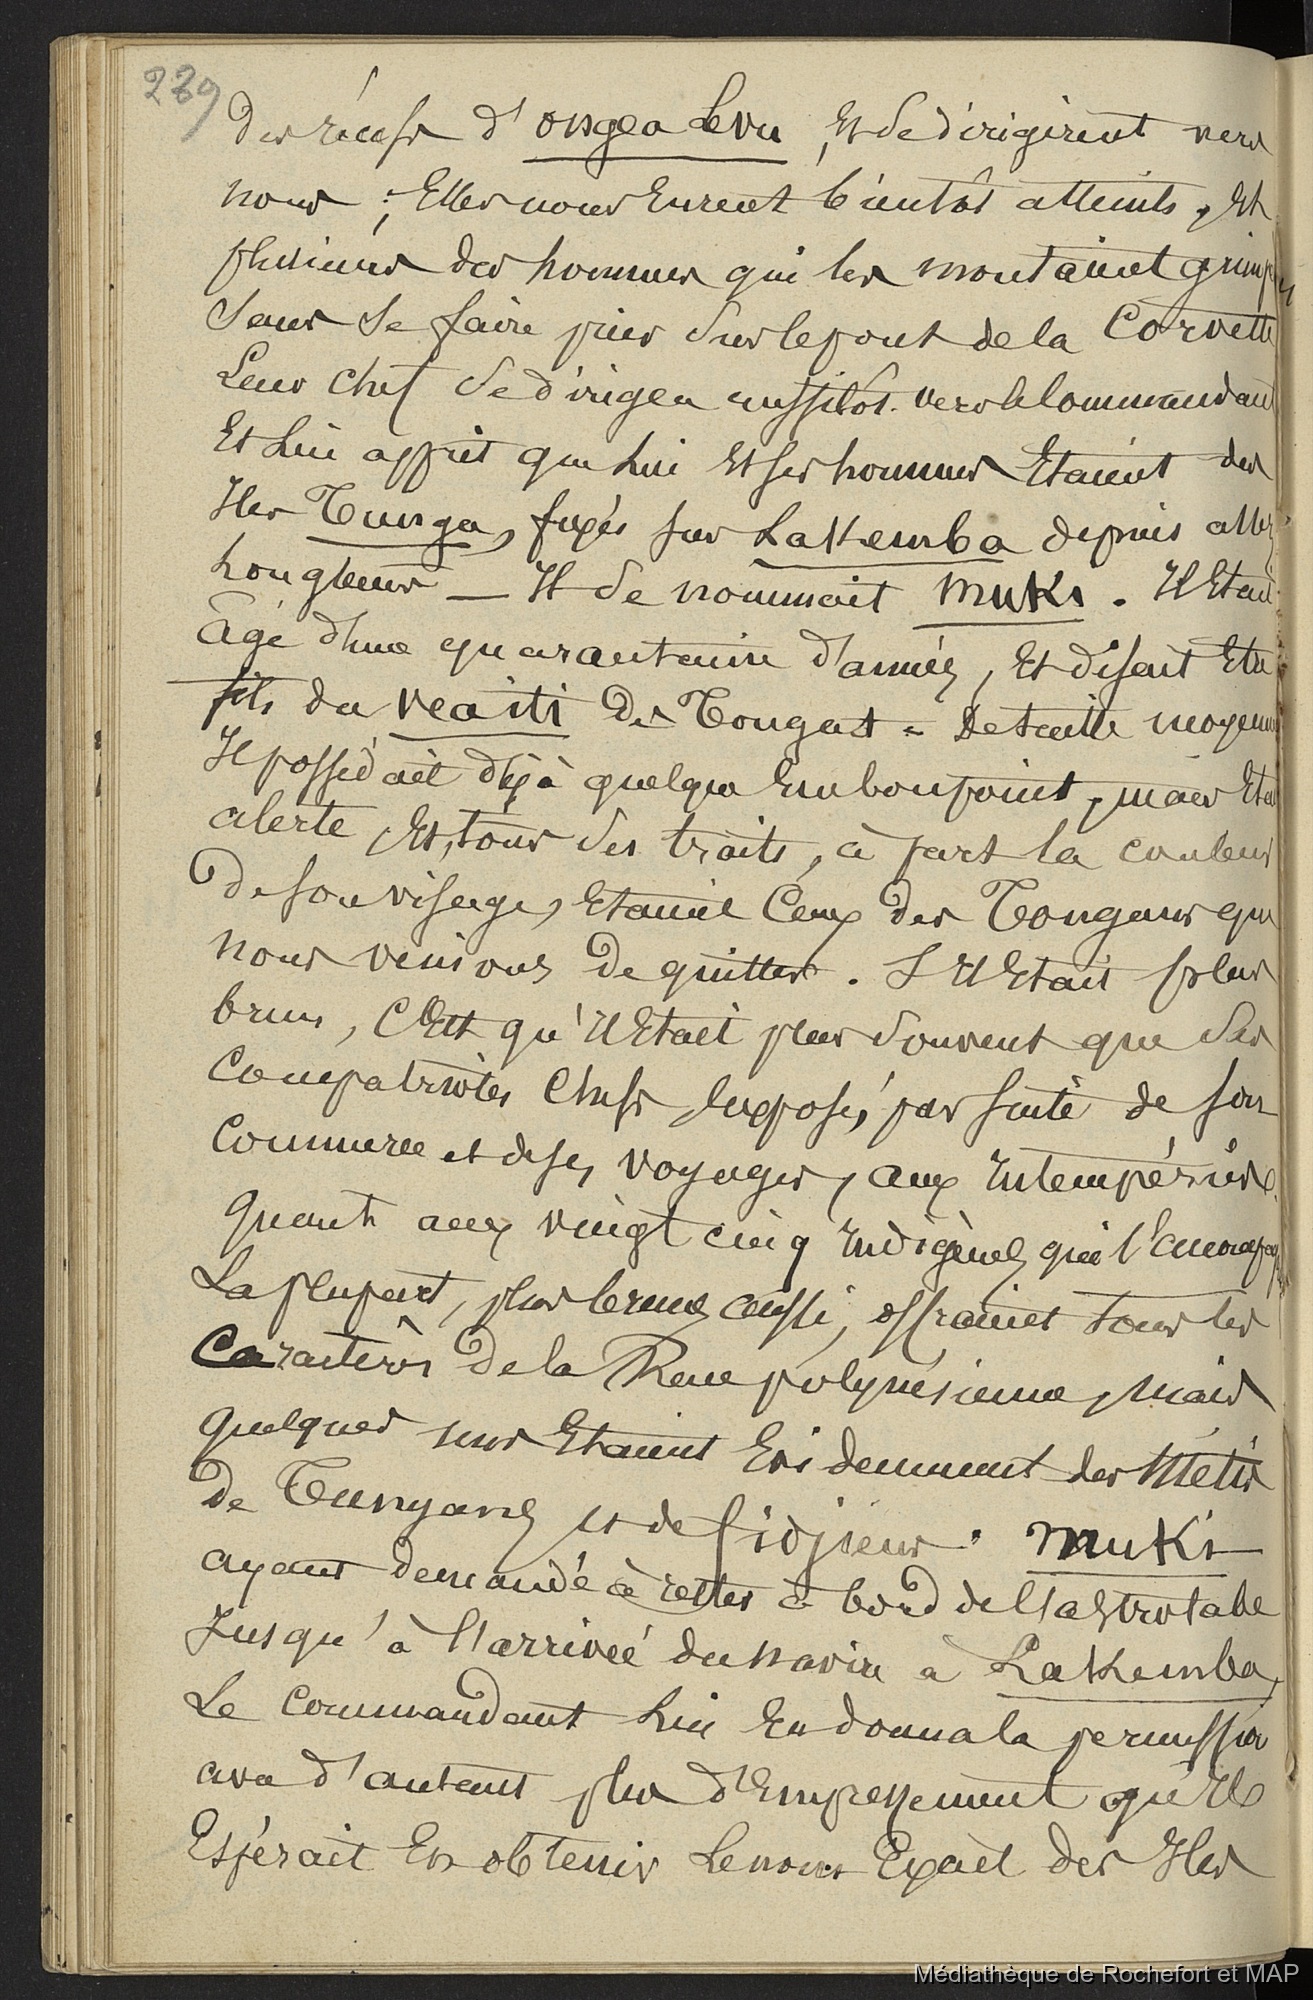 239
des récifs d'ongea Levu, Et se dirigèrent vers
nous ; Elles nous Eurent bientôt atteints, Et
plusieurs des hommes qui les montaient
sans se faire prier sur le pont de la Corvette
Leur chef se dirigea aussitôt vers le Commandant
Et Lui apprit que Lui Et ses hommes Etaient des
Iles Tunga, fixés sur Lakemba depuis assez
longtems — Il se nommait Muki. Il Etait
âgé d'une quarantaine d'années, Et disait Etre
fils du veaiti de Tongat = De taille moyenne
Il possédait déjà quelque Embonpoint, mais Etait
alerte Et, tous ses traits, à part la couleur
de son visage, Etaient Ceux des Tongans que
nous venions de quitter. S'Il Etait plus
brun, C'Est qu'Il Etait plus souvent que ses
Compatriotes Chefs Exposé, par suite de son
Commerce et de ses voyages, aux Intempéries.
Quant aux vingt cinq Indigènes qui l'
La plupart, plus bruns aussi, offraient tous les
Caractères de la Race polynésienne, mais
quelques uns Etaient Evidemment des Métis
de Tungans et de fidjiens. Muki
ayant demandé à rester à bord de l'astrolabe
Jusqu'à l'arrivée du navire à Lakemba,
Le Commandant Lui En donna la permission
avec d'autant plus d'Empressement qu'Il
Espérait En obtenir Le nom Exact des Iles
Médiathèque de Rochefort et MAP